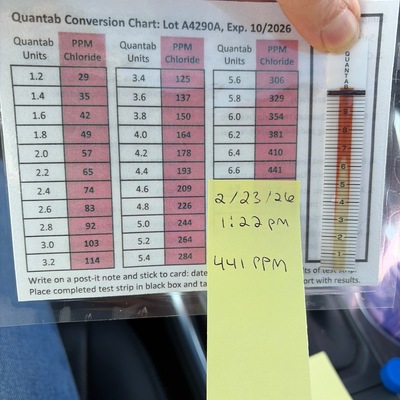 Quantab Conversion Chart: Lot A4290A, Exp. 10/2026
Quantab Units PPM Chloride Quantab Units PPM Chloride Quantab Units PPM Chloride
1.2 29 3.4 125 5.6 306
1.4 35 3.6 137 5.8 329
1.6 42 3.8 150 6.0 354
1.8 49 4.0 164 6.2 381
2.0 57 4.2 178 6.4 410
2.2 65 4.4 193 6.6 441
2.4 74 4.6 209
2.6 83 4.8 226
2.8 92 5.0 244
3.0 103 5.2 264
3.2 114 5.4 284
Write on a post-it note and stick to card: date
Place completed test strip in black box and ta
ts of test strip.
ort with results.
2/23/26
1:22 pm
441 PPM
QUANTAB
9
8
7
6
5
4
3
2
1